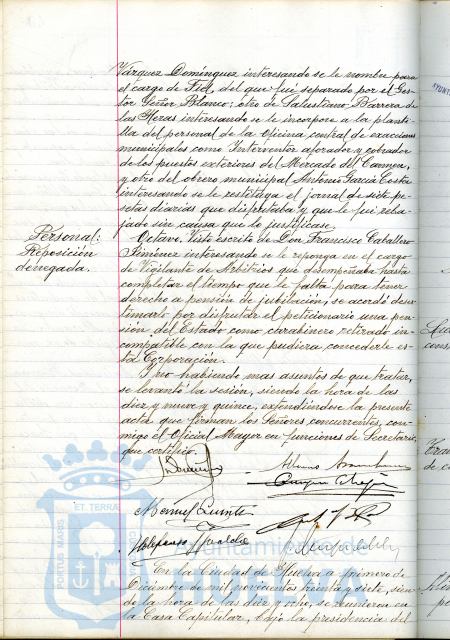 Vázquez Domínguez interesando se le nombre para
el cargo de Fiel, del que fué separado por el Ges-
tor Señor Blanco; otro de Salustiano Barrera de
las Heras interesando se le incorpore a la planti-
lla del personal de la Oficina central de exacciones
municipales como Interventor aforador y cobrador
de los puestos exteriores del Mercado del Carmen,
y otro del obrero municipal Antonio García Costa
interesando se le restituya el jornal de siete pe-
setas diarias que disfrutaba y que le fué reba-
jado sin causa que lo justificase.
Personal:
Reposición
denegada.
Octavo. Visto escrito de Don Francisco Caballero
Jiménez interesando se le reponga en el cargo
de Vigilante de Arbitrios que desempeñaba hasta
completar el tiempo que le falta para tener
derecho a pensión de jubilación, se acordó deses-
timarlo por disfrutar el peticionario una pen-
sión del Estado como carabinero retirado in-
compatible con la que pudiera concederle es-
ta Corporación.
Y no habiendo mas asuntos de que tratar,
se levantó la sesión, siendo la hora de las
diez y nueve y quince, extendiéndose la presente
acta que firman los Señores concurrentes, con-
migo el Oficial Mayor en funciones de Secretario,
que certifico.
Manuel
Ayuntamiento de
PORTUS MARIS ET TERRAE
En la Ciudad de Huelva a primero de
Diciembre de mil novecientos treinta y siete, sien-
do la hora de las diez y ocho, se reunieron en
la Casa Capitular, bajo la presidencia del